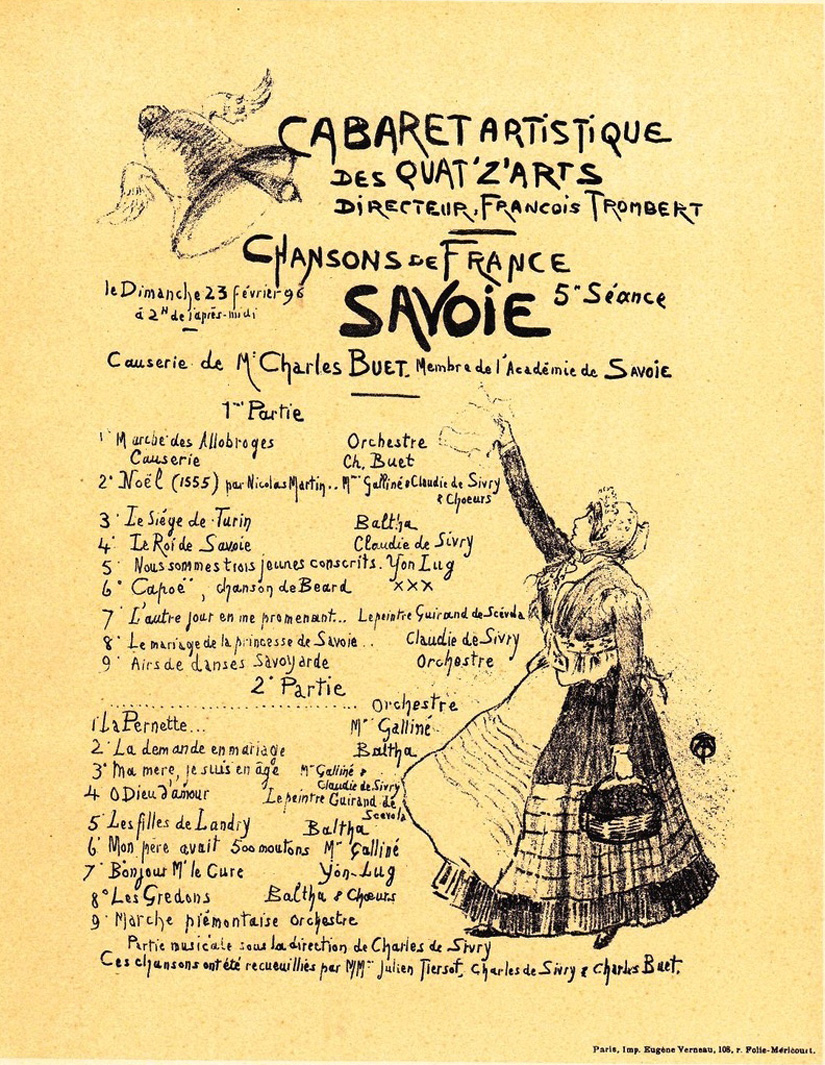 CABARET ARTISTIQUE
DES QUAT'Z'ARTS
DIRECTEUR, FRANCOIS TROMBERT
CHANSONS DE FRANCE
le Dimanche 23 février 96
à 2H de l'après-midi
SAVOIE 5e Séance
Causerie de Mr Charles BUET. Membre de l'Académie de SAVOIE
1re Partie
1° Marche des Allobroges Orchestre
Causerie Ch. Buet
2° Noël (1555) par Nicolas Martin.. Mme Galliné & Claudie de Sivry
& Choeurs
3° Le Siége de Turin Baltha
4° Le Roi de Savoie Claudie de Sivry
5° Nous sommes trois jeunes conscrits. Yon Lug
6° Capoë, chanson de Beard XXX
7° L'autre jour en me promenant... Le peintre Guirand de Scévola
8° Le mariage de la princesse de Savoie.. Claudie de Sivry
9° Airs de danses Savoyarde Orchestre
2° Partie
.............................. Orchestre
1 La Pernette... Mme Galliné
2° La demande en mariage Baltha
3° Ma mere, je suis en âge Mme Galliné &
Claudie de Sivry
4 O Dieu d'amour Le peintre Guirand de
Scevola
5° Les filles de Landry Baltha
6° Mon pere avait 500 moutons Mme Galliné
7° Bonjour Mr le Cure Yon-Lug
8° Les Gredons Baltha & Choeurs
9° Marche piémontaise Orchestre
Partie musicale sous la direction de Charles de Sivry
Ces chansons ont été recueuilliés par MMrs Julien Tiersot, Charles de Sivry & Charles Buet.
Paris, Imp. Eugène Verneau, 108, r. Folie-Méricourt.